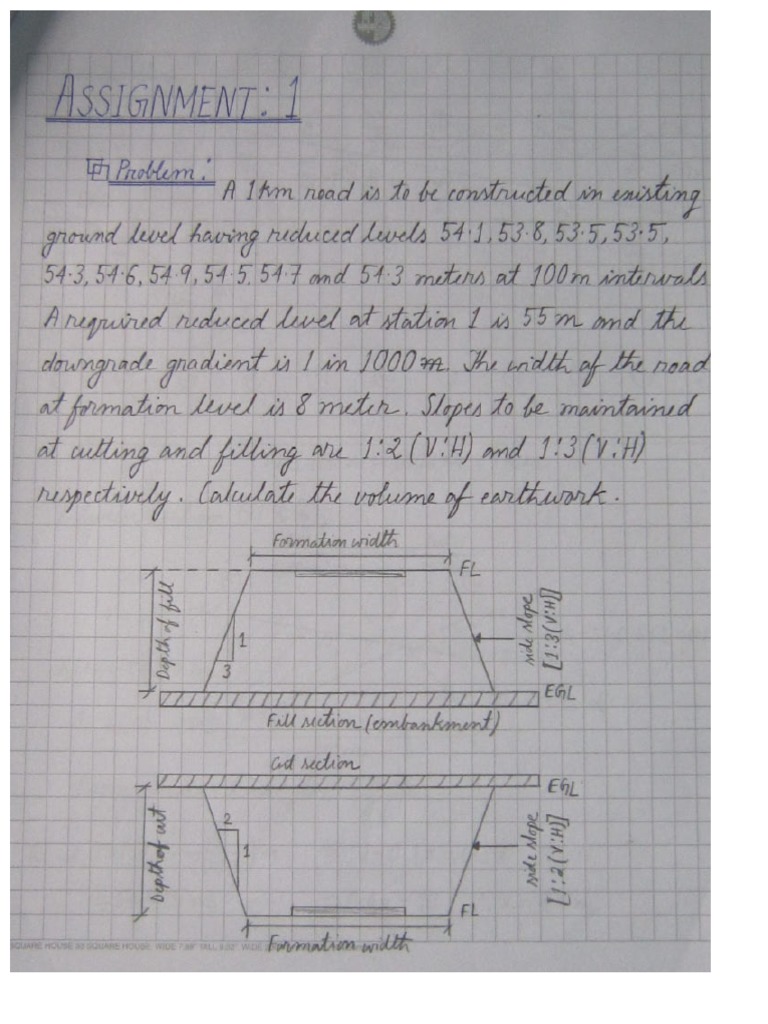 ASSIGNMENT: 1
Problem:
A 1km road is to be constructed in existing
ground level having reduced levels 54.1, 53.8, 53.5, 53.5,
54.3, 54.6, 54.9, 54.5, 54.7 and 54.3 meters at 100m intervals
A required reduced level at station 1 is 55m and the
downgrade gradient is 1 in 1000. The width of the road
at formation level is 8 meter. Slopes to be maintained
at cutting and filling are 1:2 (V:H) and 1:3 (V:H)
respectively. Calculate the volume of earthwork.
Formation width
FL
Depth of fill
1
3
side slope
[1:3(V:H)]
EGL
Fill section (embankment)
Cut section
EGL
Depth of cut
2
1
side slope
[1:2(V:H)]
FL
Formation width